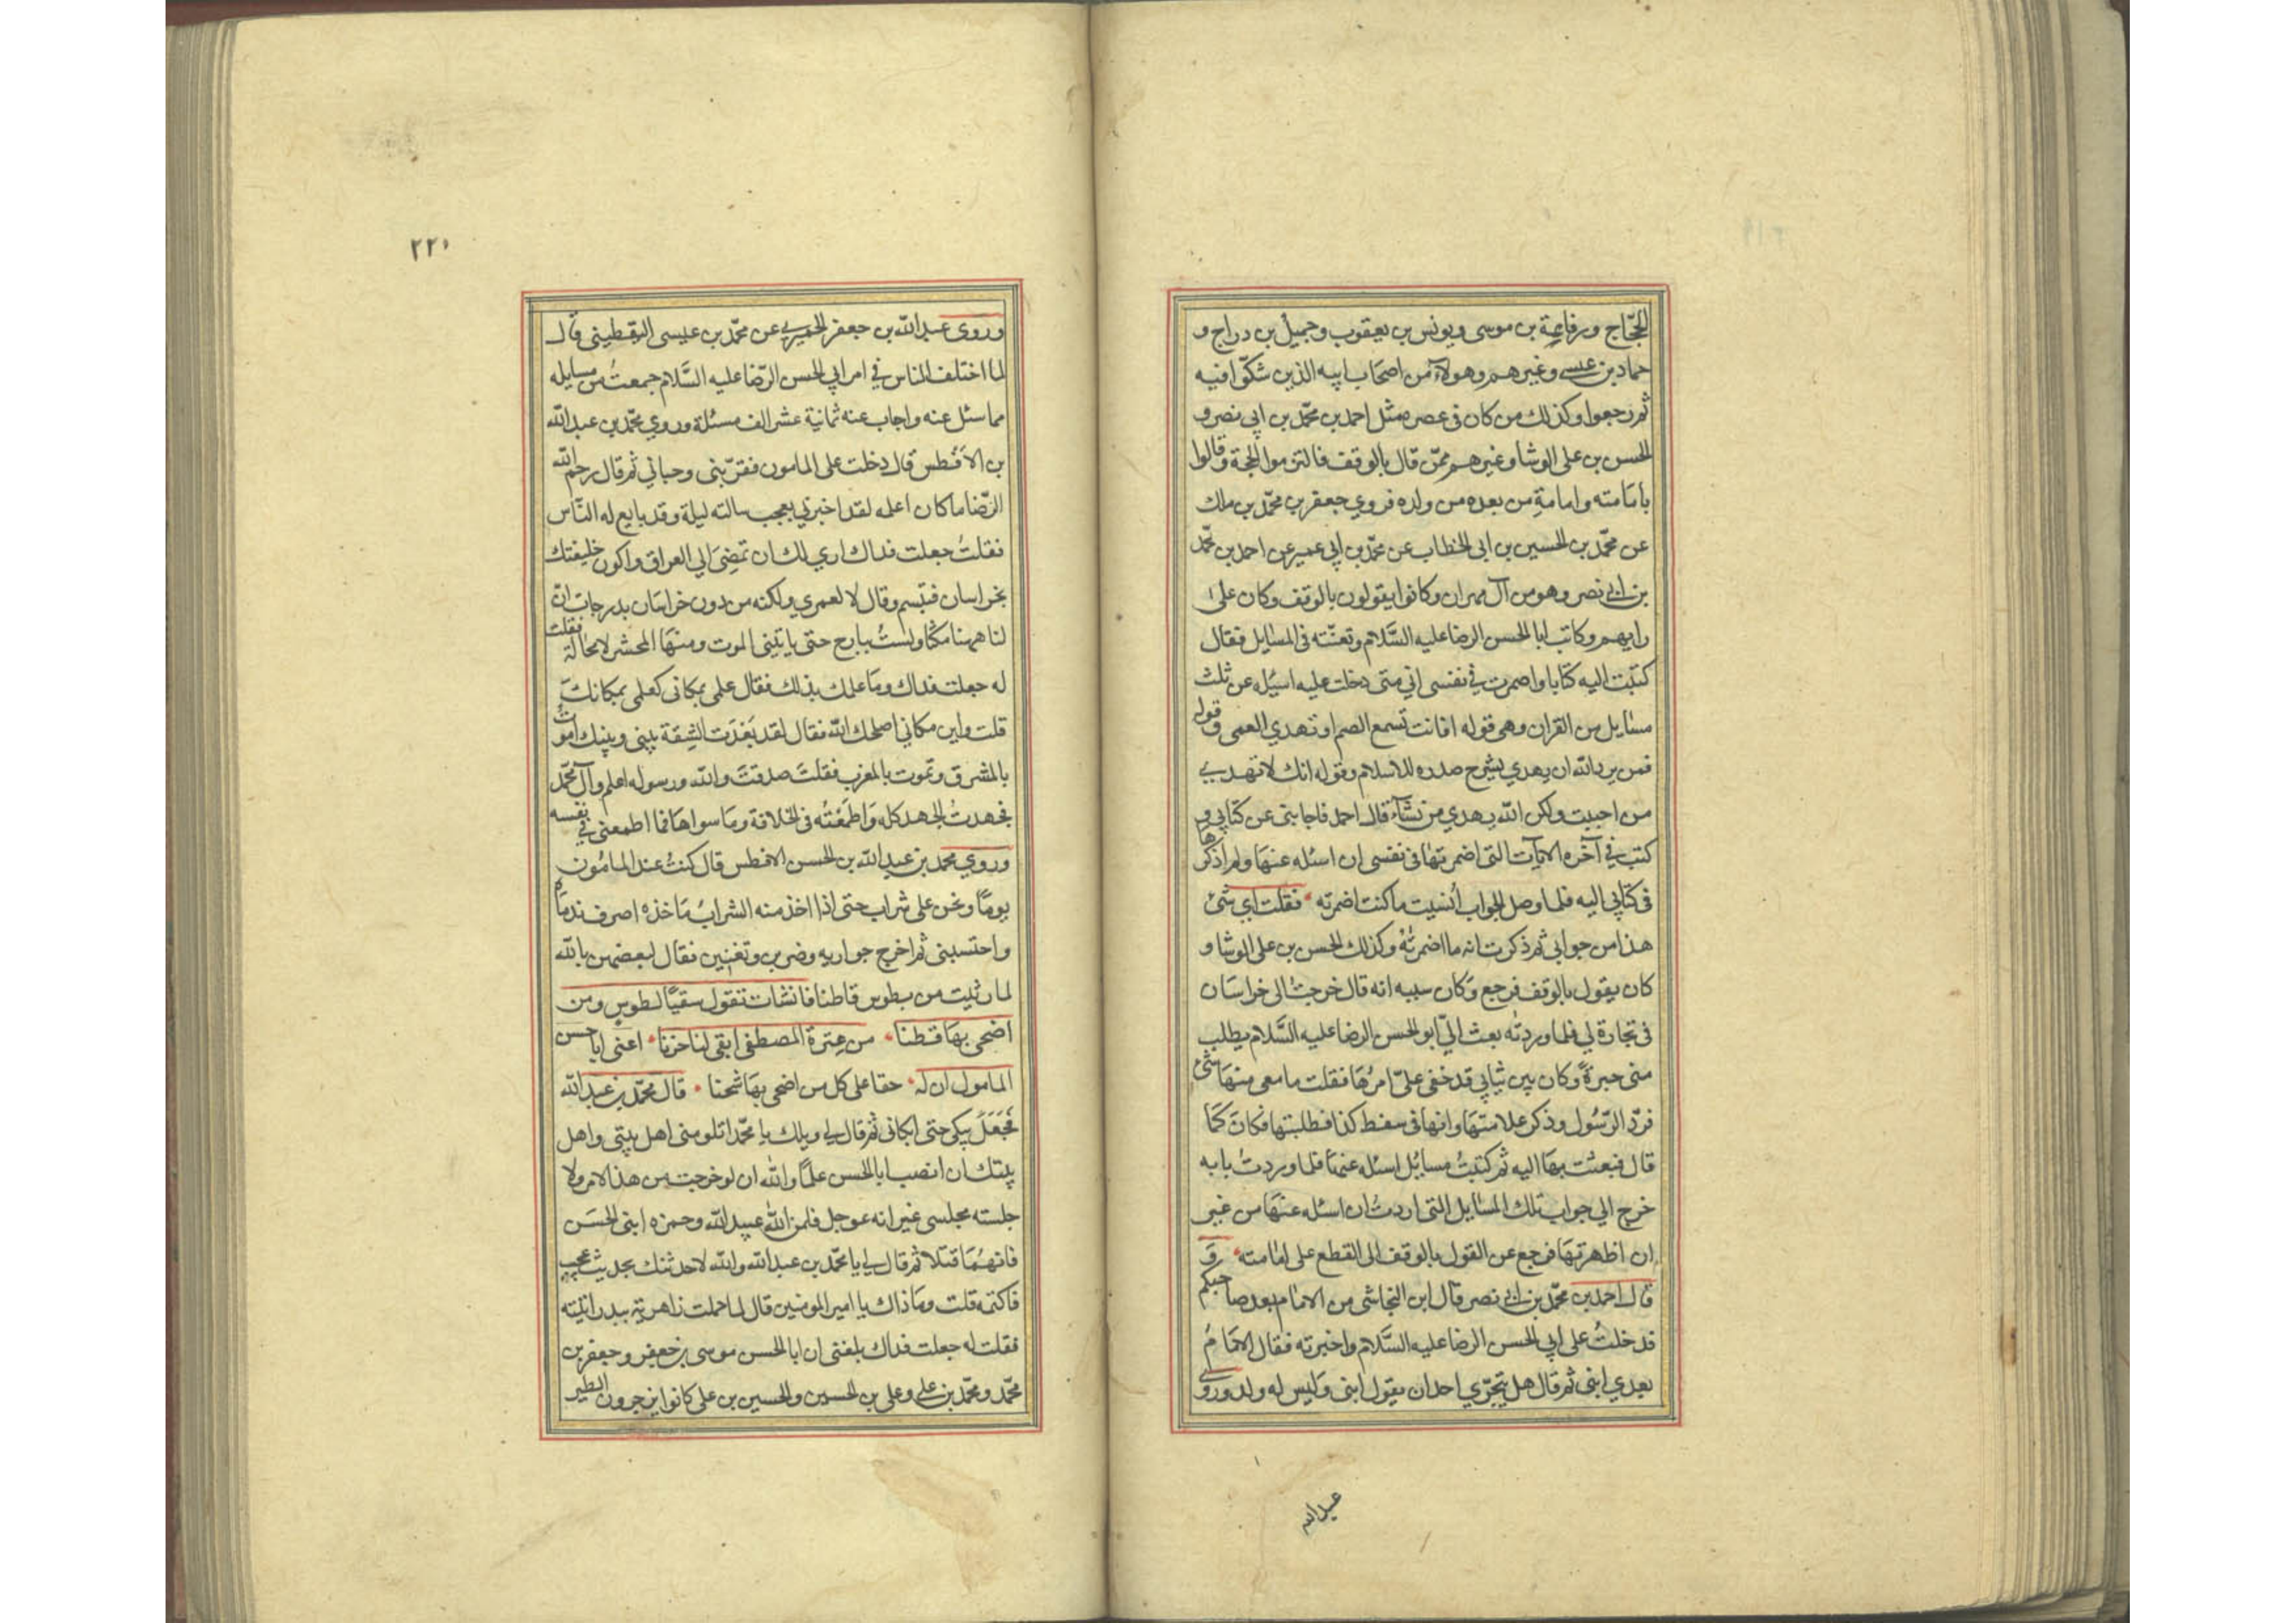 الحجّاج ورفاعة بن موسى ويونس بن يعقوب وجميل بن دراج و
حماد بن عيسى وغيرهم وهولاء من اصحاب ابيه الذين شكّوا فيه
ثم رجعوا وكذلك من كان فى عصره مثل احمد بن محمّد بن ابي نصر و
الحسن بن على الوشا وغيرهم ممّن قال بالوقف فالتزموا الحجة وقالوا
بامامته وامامة من بعده من ولده فروي جعفر بن محمّد بن مالك
عن محمّد بن الحسين بن ابى الخطاب عن محمّد بن ابي عمير عن احمد بن محمّد
بن ابى نصر وهو من آل مهران وكانوا يقولون بالوقف وكان على
رايهم وكاتب ابا الحسن الرضا عليه السَّلام وتعنّته فى المسايل فقال
كتبت اليه كتابا واضمرت في نفسى اني متى دخلت عليه اسئله عن ثلث
مسايل من القران وهى قوله افانت تسمع الصم او تهدي العمى وقوله
فمن يرد الله ان يهدي يشرح صدره للاسلام وقوله انك لا تهدي
من احببت ولكن الله يهدي من تشآء قال احمد فاجابنى عن كتابي و
كتب في آخره الايآت التى اضمرتها فى نفسى ان اسئله عنها ولم اذكرها
فى كتابي اليه فلما وصل الجواب اُنسيت ما كنت اضمرته فقلت اي شئ
هذا من جوابي ثم ذكرت انه ما اضمرتُه وكذلك الحسن بن على الوشا و
كان يقول بالوقف فرجع وكان سببه انه قال خرجت الى خراسان
فى تجارة لي فلما وردته بعث اليّ ابو الحسن الرضا عليه السَّلام يطلب
منى حبرةً وكان بين ثيابي قد خفى علىّ امرها فقلت ما معى منها شئ
فردّ الرّسُول وذكر علامتها وانها فى سفط كذا فطلبتها فكان كما
قال فبعثت بها اليه ثم كتبتُ مسايل اسئله عنها فلما وردتُ بابه
خرج الي جواب تلك المسايل التى اردتُ ان اسئله عنها من غير
ان اظهرتها فرجع عن القول بالوقف الى القطع على امامته و
قال احمد بن محمّد بن ابى نصر قال ابن النجاشى من الامام بعد صاحبكم
فدخلتُ على ابي الحسن الرضا عليه السَّلام واخبرته فقال الامامُ
بعدي ابنى ثم قال هل يتجرّي احد ان يقول ابنى وليس له ولد وروى
عبد الله
٢٢٠
وروى عبد الله بن جعفر الحميري عن محمّد بن عيسى اليقطينى قال
لما اختلف الناس في امر ابي الحسن الرّضا عليه السَّلام جمعتُ من مسايله
مما سئل عنه واجاب عنه ثمانية عشر الف مسئلة وروي محمّد بن عبد الله
بن الافطس قال دخلت على المامون فقرّبنى وحباني ثم قال رحم الله
الرّضا ما كان اعلمه لقد اخبرني بعجب سالته ليلة وقد بايع له النّاس
فقلتُ جعلت فداك اري لك ان تمضىَ الي العراق واكون خليفتك
بخراسان فتبسم وقال لا لعمري ولكنه من دون خراسان بدرجات انّ
لنا ههنا مكثا ولستُ ببارح حتى ياتينى الموت ومنها المحشر لا محالة فقلت
له جعلت فداك وما علمك بذلك فقال علمى بمكانى كعلمى بمكانك
قلت واين مكاني اصلحك الله فقال لقد بَعُدَت الشقة بينى وبينك اموتُ
بالمشرق وتموت بالمغرب فقلتُ صدقتَ والله ورسوله اعلم وآل محمّد
فجهدتُ الجهد كله واطمَعْتُه فى الخلافة وما سواها فما اطمعنى في نفسه
وروي محمد بن عبد الله بن الحسن الافطس قال كنتُ عند المامُون
يومًا ونحن على شراب حتى اذا اخذ منه الشرابُ ماخذه اصرف ندماه
واحتسبنى ثم اخرج جواريه وضربن وتغنين فقال لبعضهن بالله
لما رثيت من بطوس قاطنا فانشات تقول سقيًا لطوس ومن
اضحى بها قطنا من عِترة المصطفى ابقى لنا حزنا اعنى ابا حسن
المامول ان له حقا على كل من اضحى بها شحنا قال محمّد بن عبد الله
فجَعَلَ يبكى حتى ابكانى ثم قال لي ويلك يا محمّد اتلومنى اهل بيتى واهل
بيتك ان انصب ابا الحسن علمًا والله ان لو خرجت من هذا الامر ولا
جلسته مجلسى غير انه عوجل فلعن الله عبيد الله وحمزه ابنى الحسَن
فانهُمَا قتلا ثم قال لي يا محمّد بن عبد الله والله لاحدثنك بحديث عجيب
فاكتمه قلت وما ذاك يا امير المومنين قال لما حملت زاهرية ببدر اتيته
فقلت له جعلت فداك بلغنى ان ابا الحسن موسى بن جعفر وجعفر بن
محمّد ومحمّد بن على وعلى بن الحسين والحسين بن على كانوا يزجرون الطير